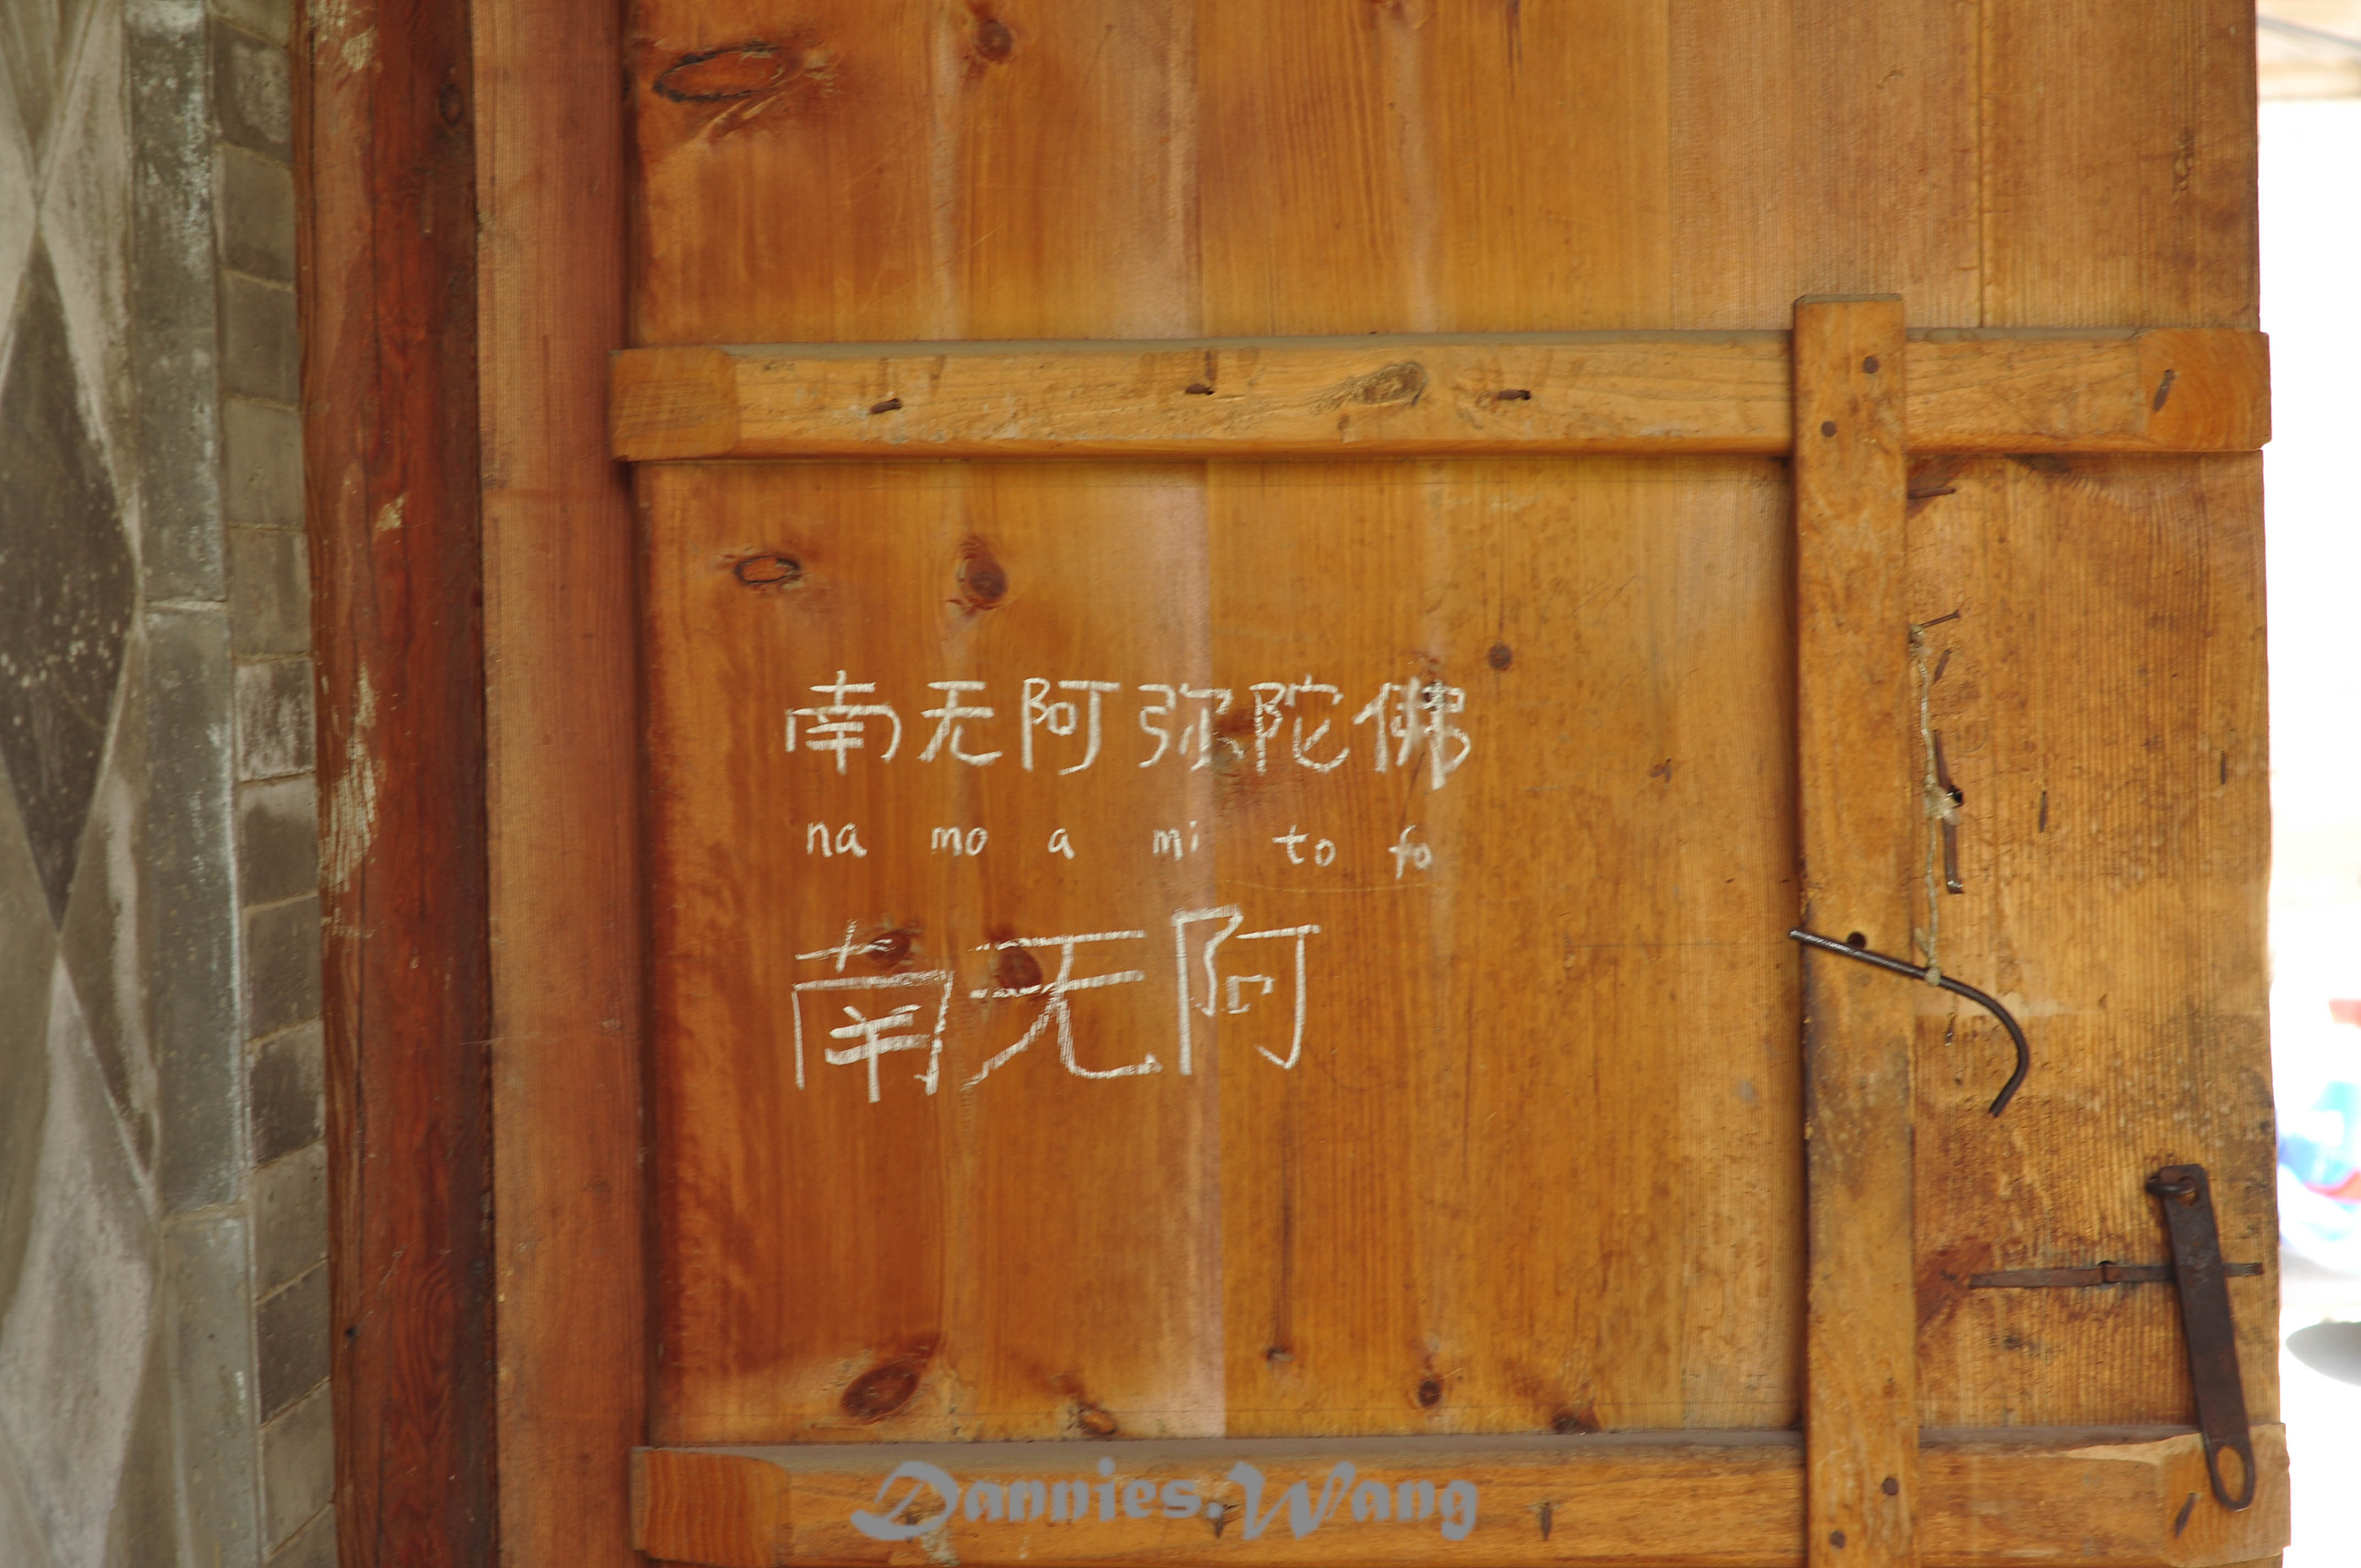 南无阿弥陀佛
na mo a mi to fo
南无阿
Dannies.Wang